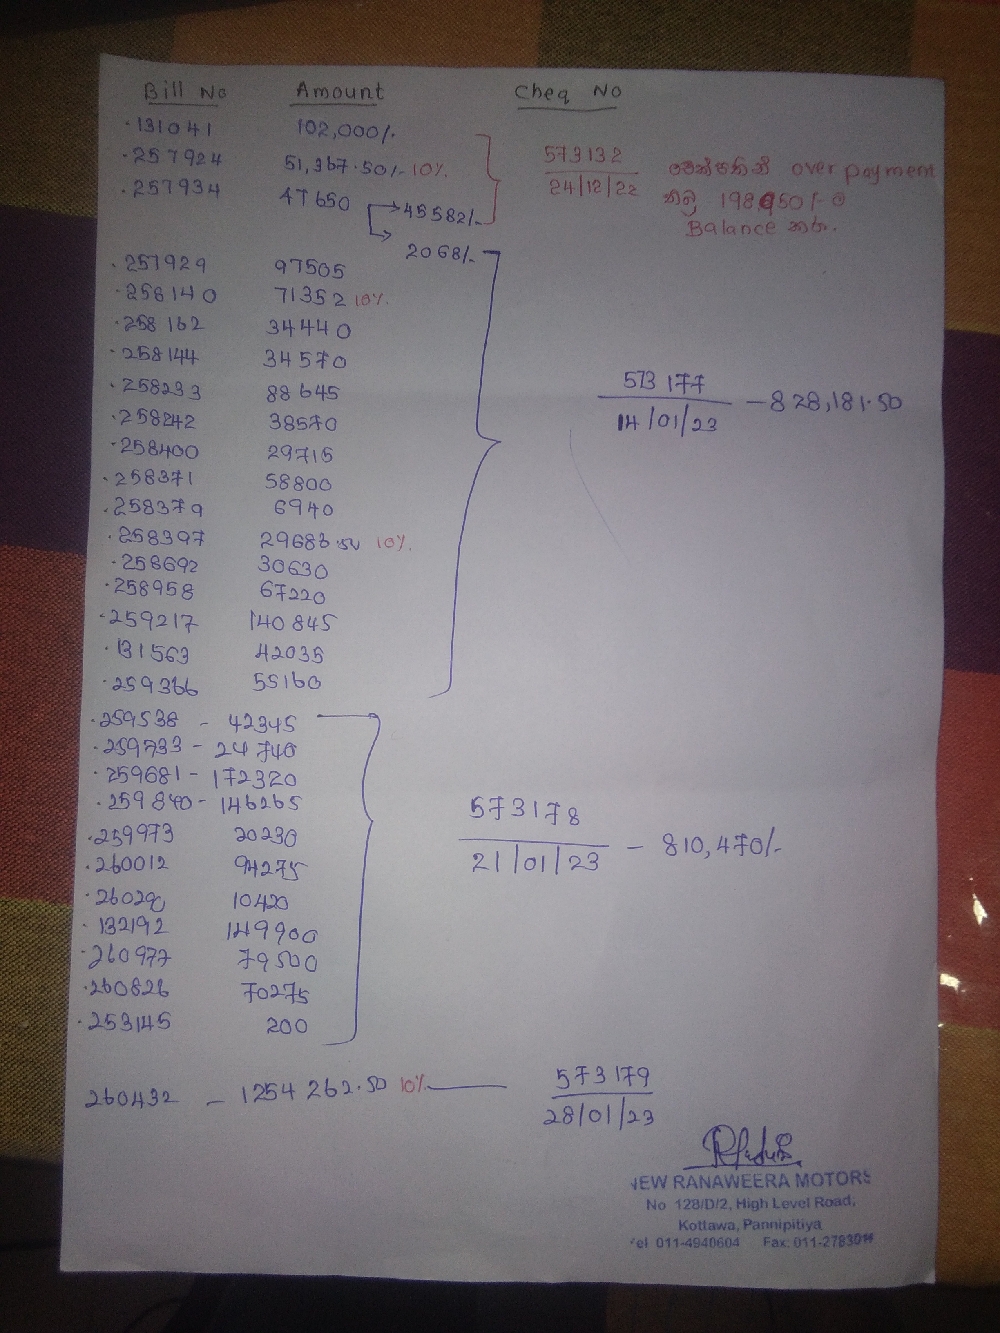 Bill No Amount Cheq No
131041 102,000/-
257924 51,367.50/- 10%
257934 47650
45582/-
2068/-
573132
24/12/22
over payment
198,950/-
Balance කරා.
257929 97505
258140 71352 10%
258162 34440
258144 34570
258233 88645
258242 38570
258400 29715
258371 58800
258379 6940
258397 29683.50 10%
258692 30630
258958 67220
259217 140845
131563 42035
259366 55160
573177
14/01/23 - 828,181.50
259538 - 42345
259733 - 24740
259681 - 172320
259840 - 146265
259973 20230
260012 94275
260290 10420
132192 149900
260977 79500
260826 70275
253145 200
573178
21/01/23 - 810,470/-
260432 - 1254262.50 10%
573179
28/01/23
NEW RANAWEERA MOTORS
No 128/D/2, High Level Road,
Kottawa, Pannipitiya
Tel 011-4940604 Fax: 011-2783011